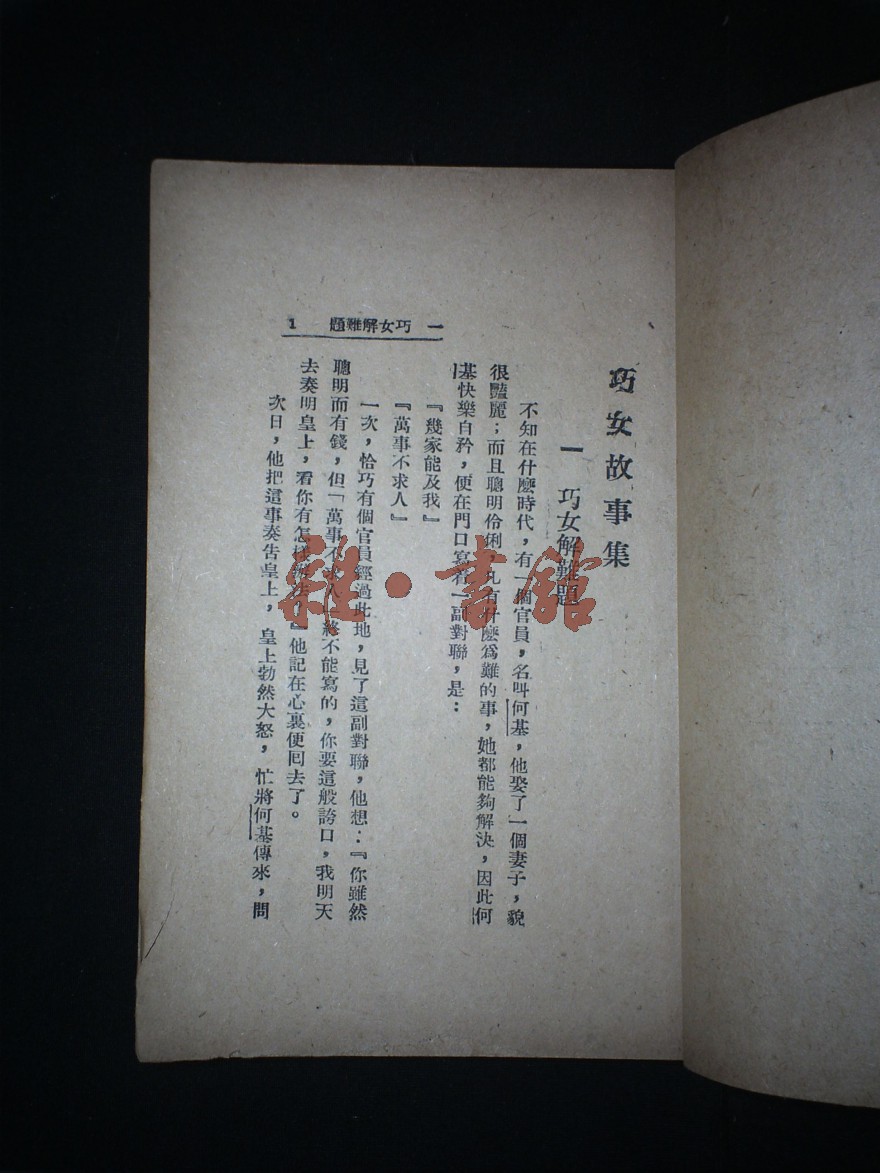 巧女故事集
一 巧女解難題
不知在什麼時代，有一個官員，名叫何基，他娶了一個妻子，貌
很豔麗；而且聰明伶俐，凡有什麼爲難的事，她都能夠解決，因此何
基快樂自矜，便在門口寫着一副對聯，是：
『幾家能及我』
『萬事不求人』
一次，恰巧有個官員經過此地，見了這副對聯，他想：『你雖然
聰明而有錢，但「萬事不求人」終不能寫的，你要這般誇口，我明天
去奏明皇上，看你有怎樣辦法！』他記在心裏便囘去了。
次日，他把這事奏告皇上，皇上勃然大怒，忙將何基傳來，問
一 巧女解難題 1
雜·書館